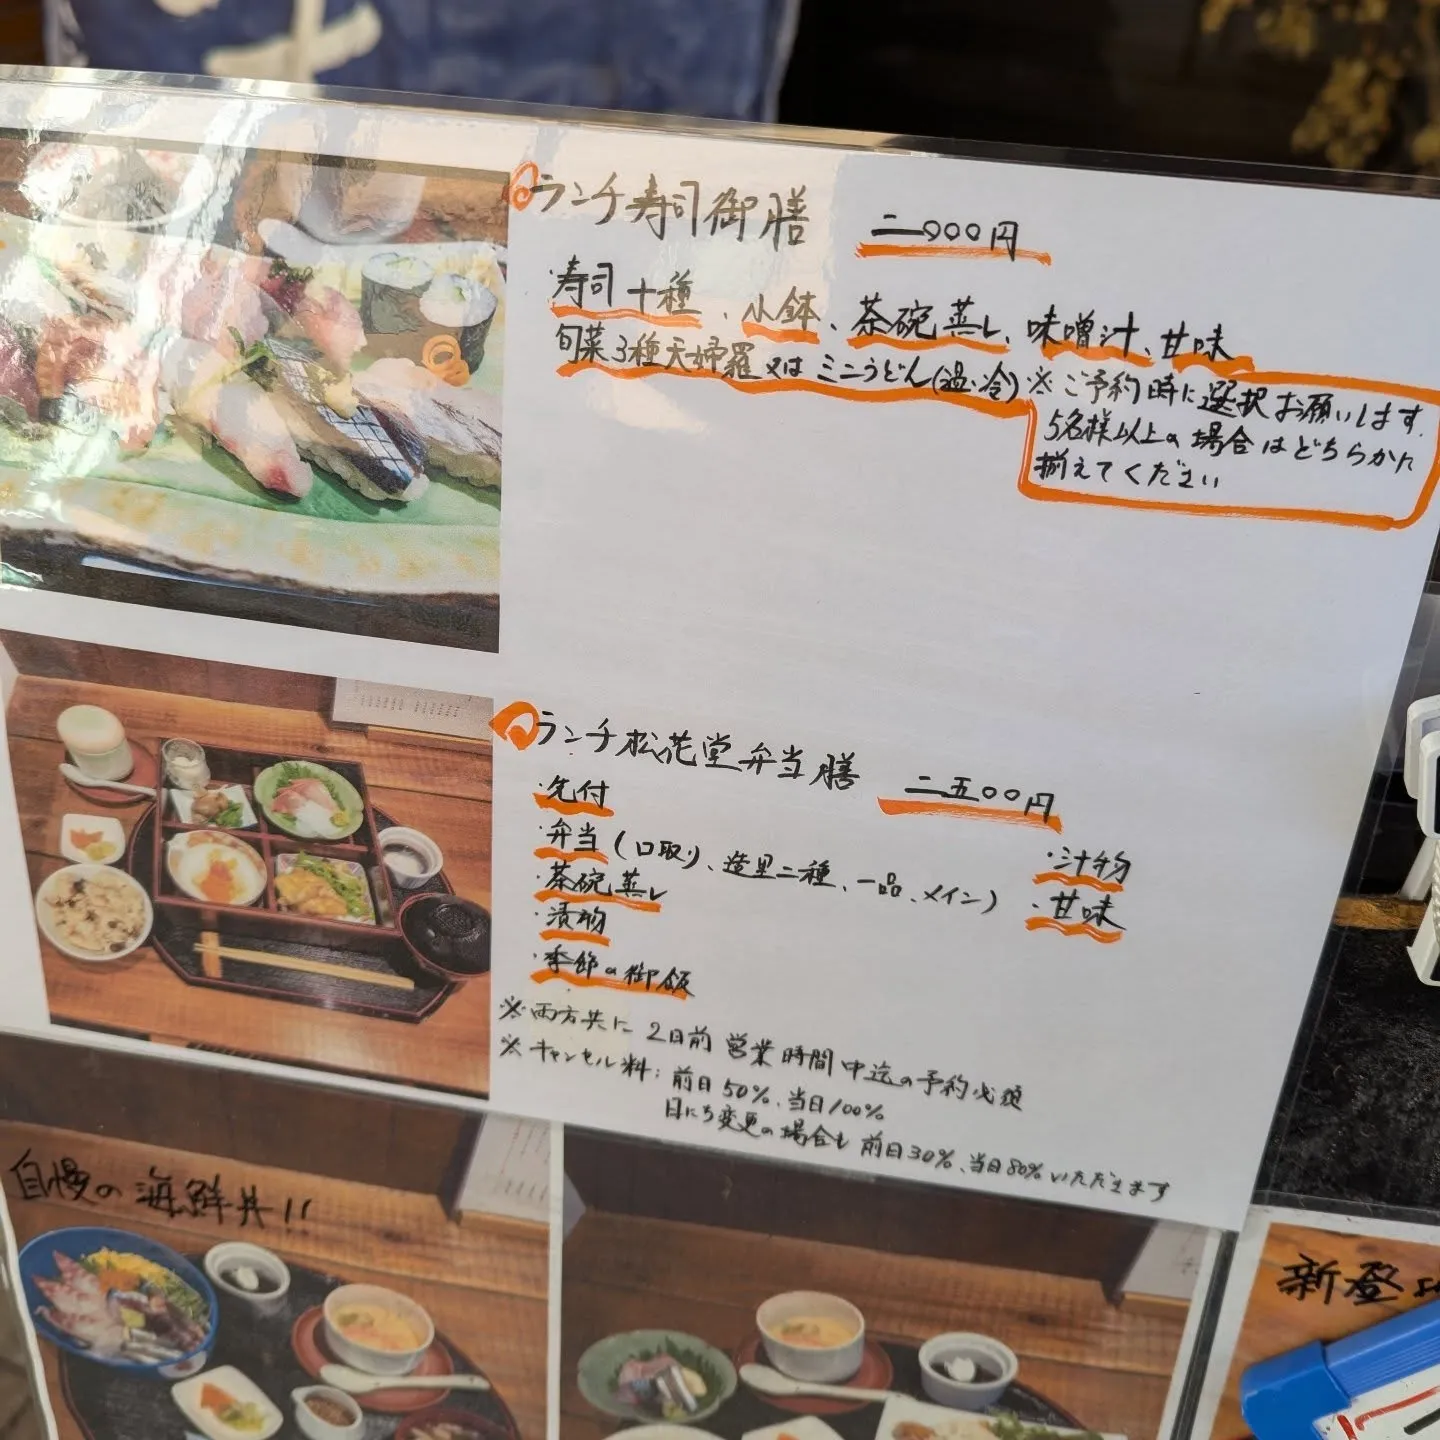 ランチ寿司御膳 二〇〇〇円
・寿司十種、小鉢、茶碗蒸し、味噌汁、甘味
旬菜3種天婦羅又はミニうどん(温・冷)※ご予約時に選択お願いします。
5名様以上の場合はどちらかに
揃えてください
ランチ松花堂弁当膳 二五〇〇円
・先付
・弁当(口取り、造里二種、一品、メイン)
・茶碗蒸し
・漬物
・季節の御飯
・汁物
・甘味
※両方共に 2日前営業時間中迄の予約必須
※キャンセル料:前日50%、当日100%
日にち変更の場合も 前日30%、当日80%いただきます
自慢の海鮮丼!!
新登